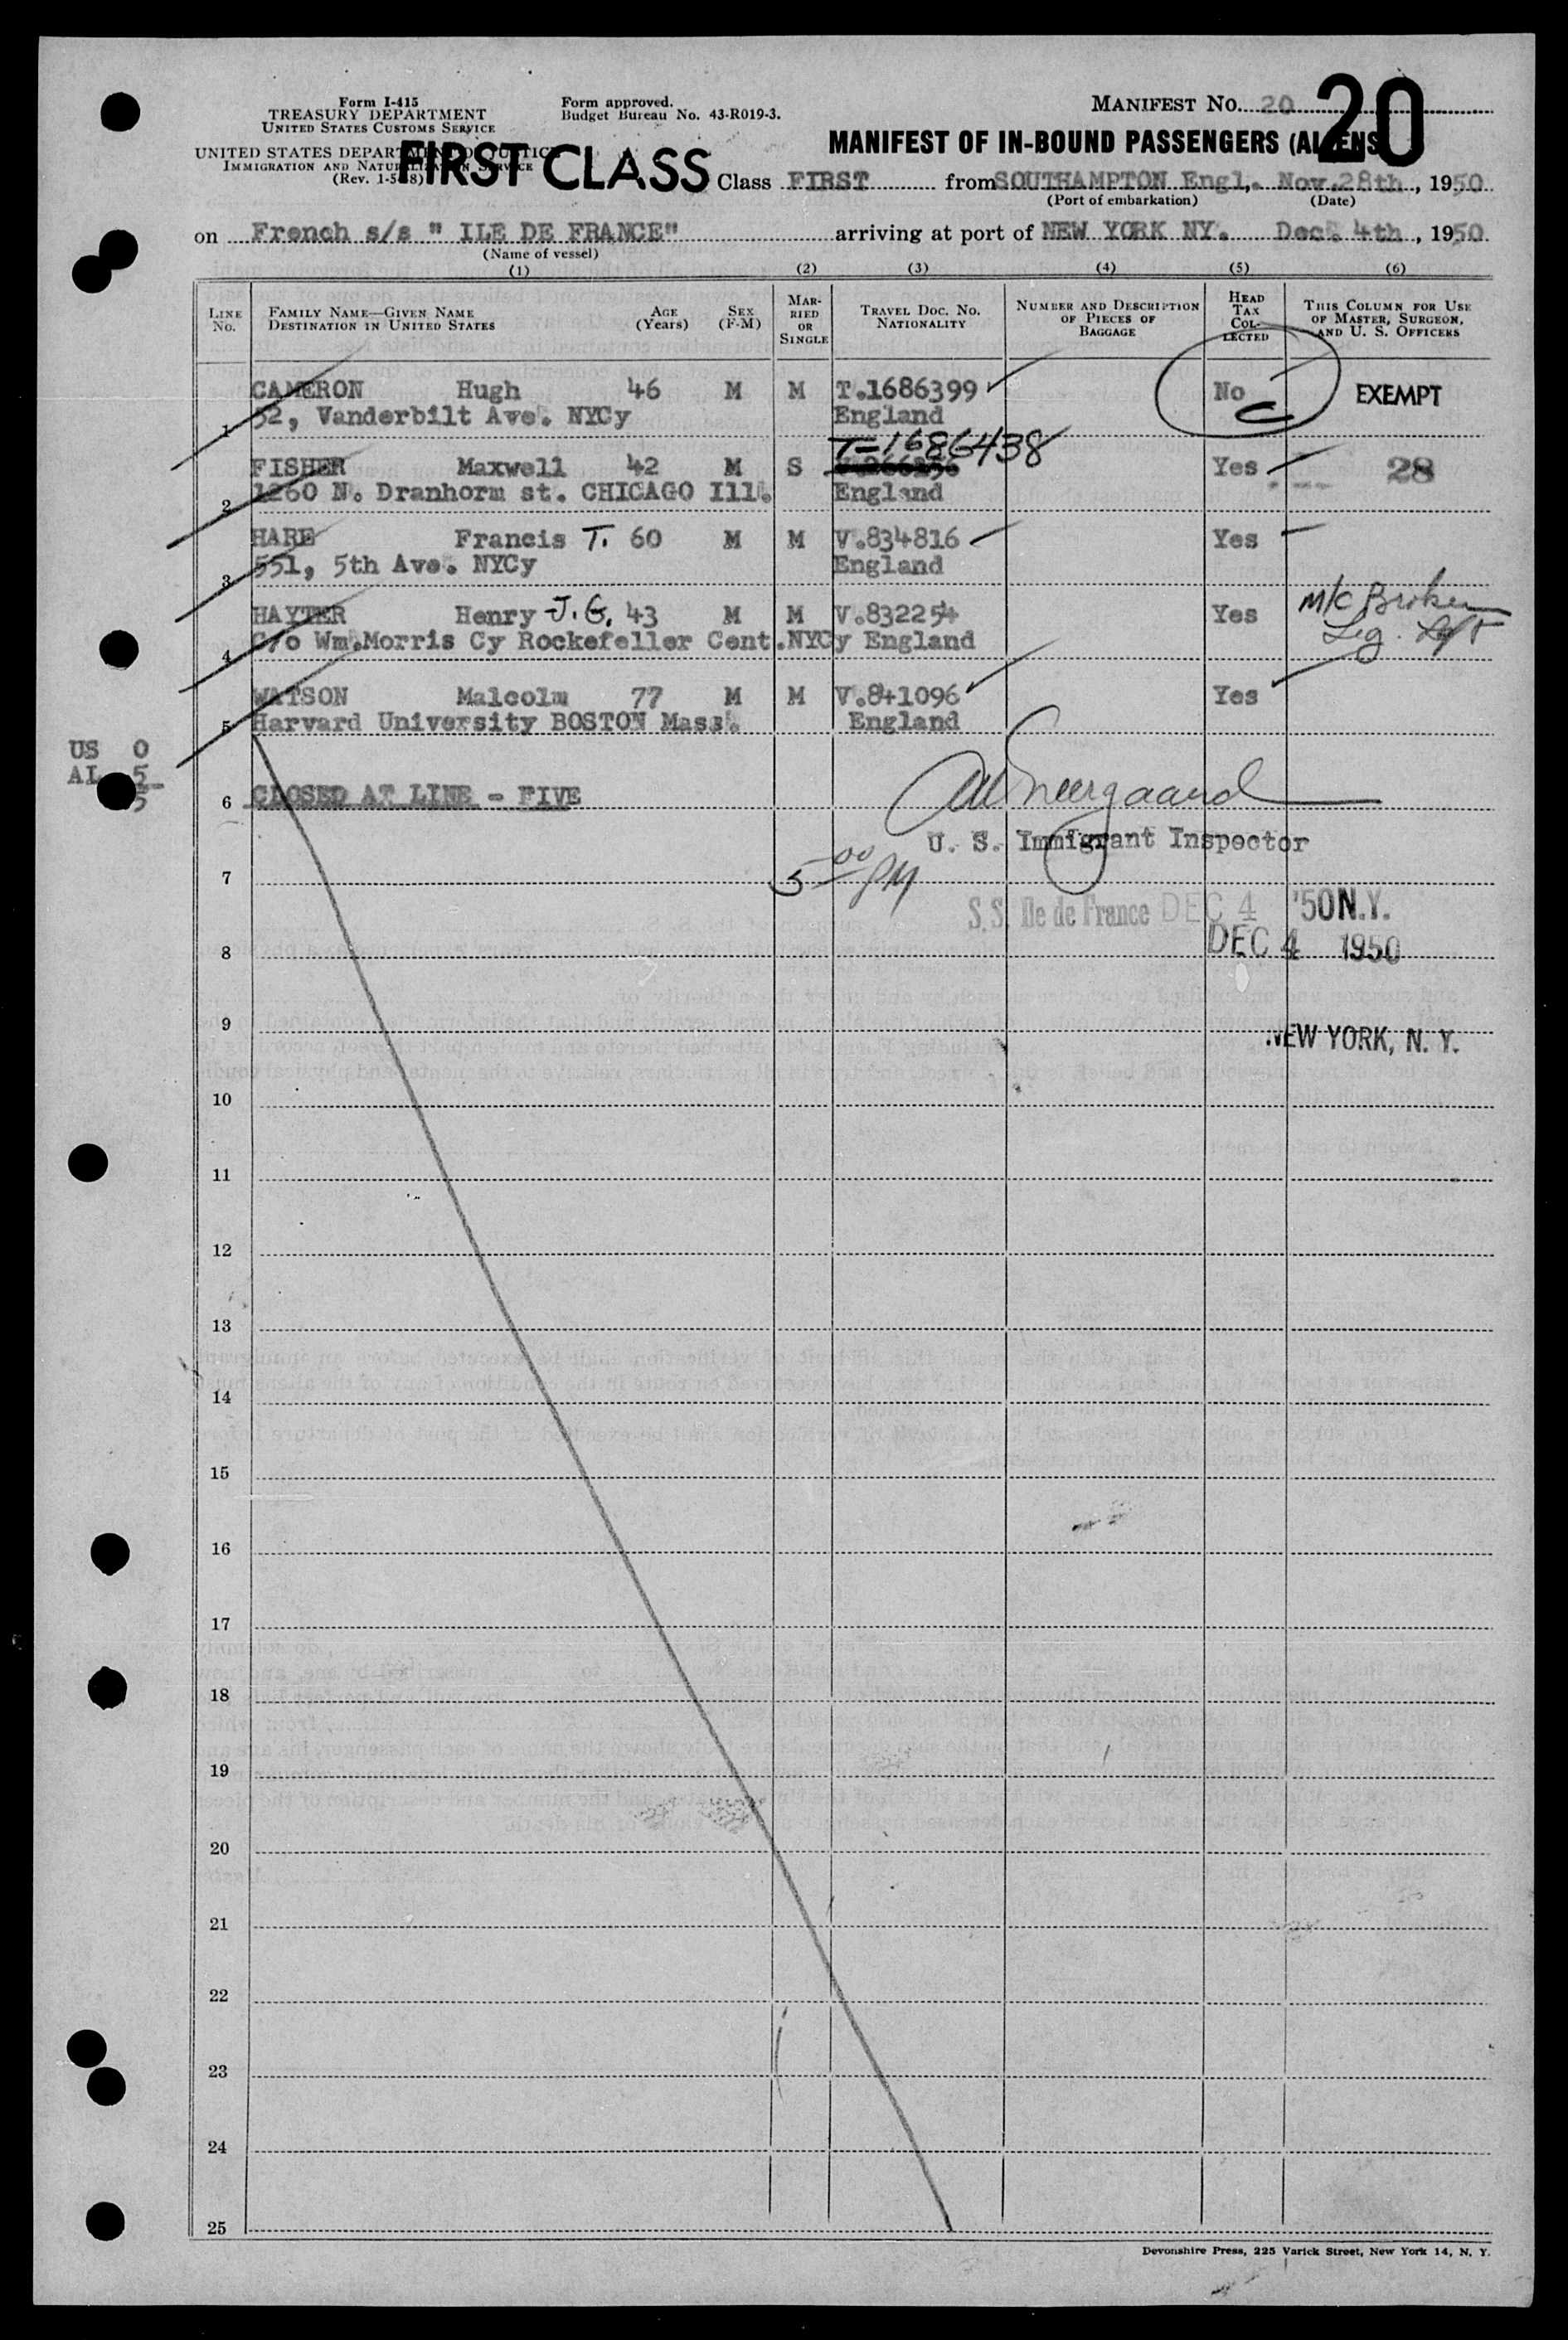 Form I-415
TREASURY DEPARTMENT
UNITED STATES CUSTOMS SERVICE
UNITED STATES DEPARTMENT OF JUSTICE
IMMIGRATION AND NATURALIZATION SERVICE
(Rev. 1-5-48)
Form approved.
Budget Bureau No. 43-R019-3.
MANIFEST NO. 20
20
MANIFEST OF IN-BOUND PASSENGERS (ALIENS)
FIRST CLASS
Class FIRST from SOUTHAMPTON Engl. Nov. 28th, 1950
(Port of embarkation) (Date)
on French s/s " ILE DE FRANCE" arriving at port of NEW YORK NY. Dec. 4th, 1950
(Name of vessel)
(1) (2) (3) (4) (5) (6)
LINE NO.
FAMILY NAME—GIVEN NAME
DESTINATION IN UNITED STATES
AGE (Years)
SEX (F-M)
MARRIED OR SINGLE
TRAVEL DOC. NO.
NATIONALITY
NUMBER AND DESCRIPTION OF PIECES OF BAGGAGE
HEAD TAX COLLECTED
THIS COLUMN FOR USE OF MASTER, SURGEON, AND U. S. OFFICERS
CAMERON Hugh 46 M M T.1686399 No EXEMPT
1 52, Vanderbilt Ave. NYCy England
T-1686438
FISHER Maxwell 42 M S Yes 28
2 1260 N. Dranhorm st. CHICAGO Ill. England
HARE Francis T. 60 M M V.834816 Yes
3 551, 5th Ave. NYCy England
HAYTER Henry J.G. 43 M M V.832254 Yes M/C Broken
4 C/o Wm.Morris Cy Rockefeller Cent.NYCy England Leg.
WATSON Malcolm 77 M M V.841096 Yes
5 Harvard University BOSTON Mass. England
US 0
AL 5
5
6 CLOSED AT LINE - FIVE
U. S. Immigrant Inspector
7 5 00 PM
S.S. Ile de France DEC 4 '50 N.Y.
8 DEC 4 1950
9 NEW YORK, N. Y.
10
11
12
13
14
15
16
17
18
19
20
21
22
23
24
25
Devonshire Press, 225 Varick Street, New York 14, N. Y.